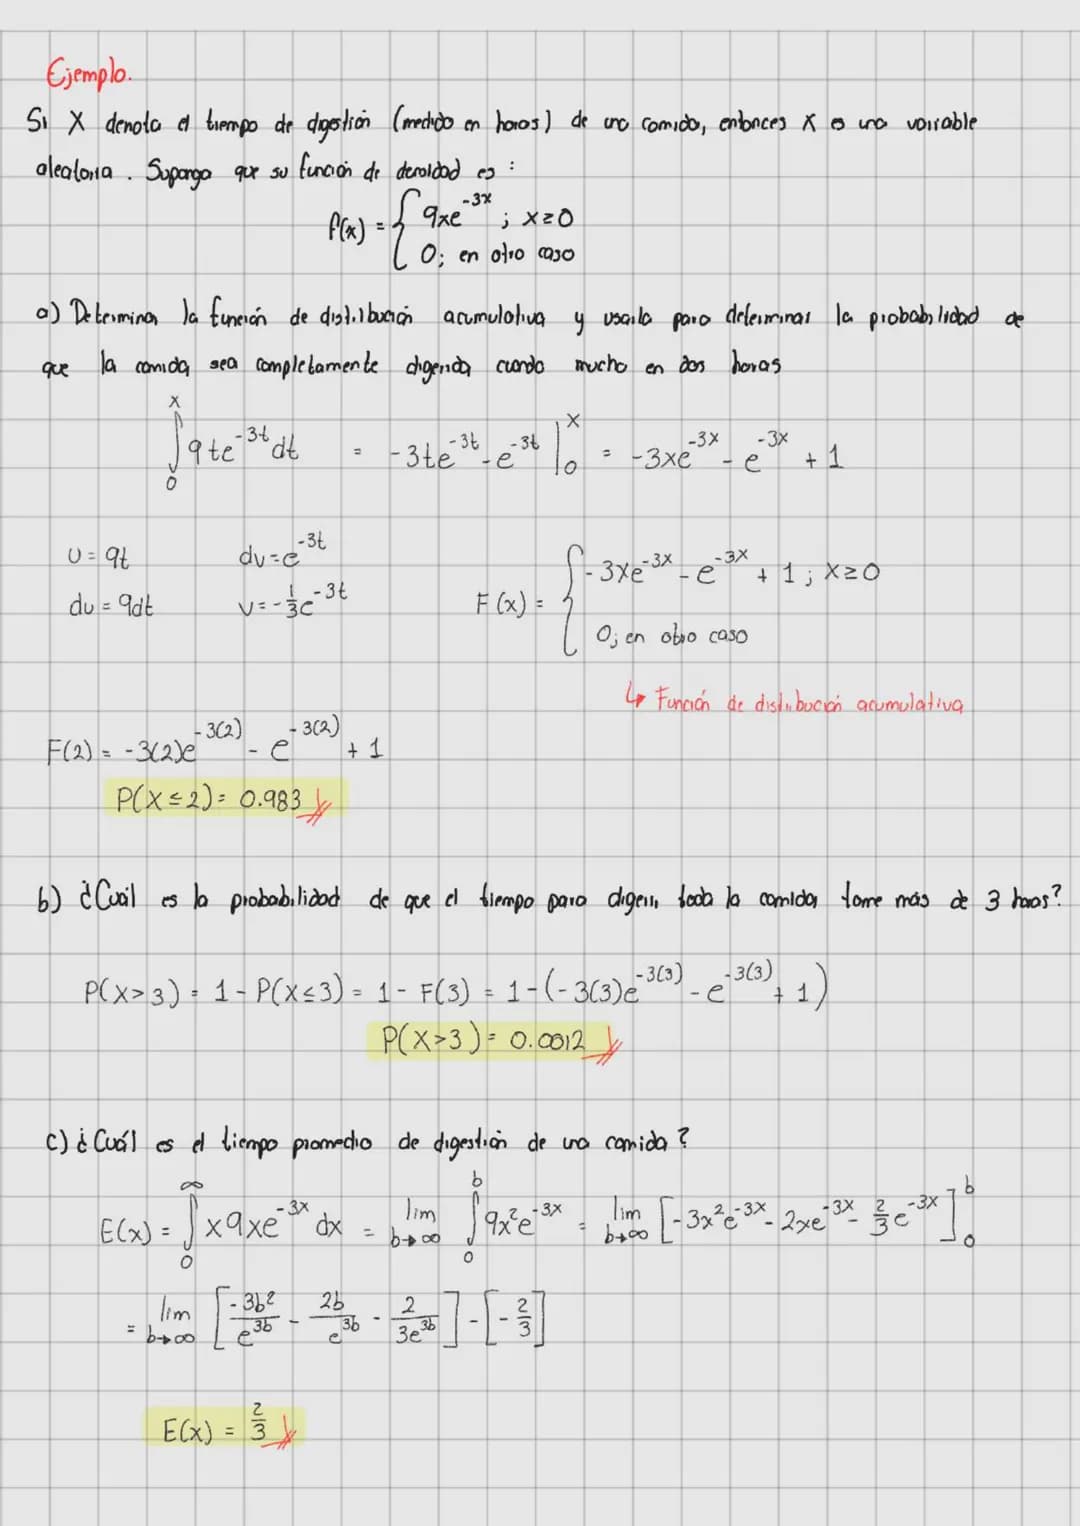 Ejemplo.
Si X denota el tiempo de digestión (medido en horas) de una comida, entonces X es una variable
aleatoria. Suponga que su función de densidad es :
f(x) = { 9xe^-3x ; x≥0
0; en otro caso
a) Determinar la función de distribución acumulativa y usarla para determinar la probabilidad de
que la comida sea completamente digerida cuando mucho en dos horas
∫₀ˣ 9te^-3t dt = -3te^-3t - e^-3t |₀ˣ = -3xe^-3x - e^-3x + 1
U = 9t dv = e^-3t
du = 9dt v = -1/3 e^-3t
F(x) = { -3xe^-3x - e^-3x + 1 ; x≥0
0; en otro caso
↳ Función de distribución acumulativa
F(2) = -3(2)e^-3(2) - e^-3(2) + 1
P(X≤2) = 0.983
b) ¿Cuál es la probabilidad de que el tiempo para digerir toda la comida tome más de 3 horas?
P(X>3) = 1 - P(X≤3) = 1 - F(3) = 1 - (-3(3)e^-3(3) - e^-3(3) + 1)
P(X>3) = 0.0012
c) ¿Cuál es el tiempo promedio de digestión de una comida?
E(x) = ∫₀^∞ x9xe^-3x dx = lim b→∞ ∫₀^b 9x²e^-3x = lim b→∞ [-3x²e^-3x - 2xe^-3x - 2/3 e^-3x]₀^b
= lim b→∞ [-3b²/e^3b - 2b/e^3b - 2/3e^3b] - [-2/3]
E(x) = 2/3